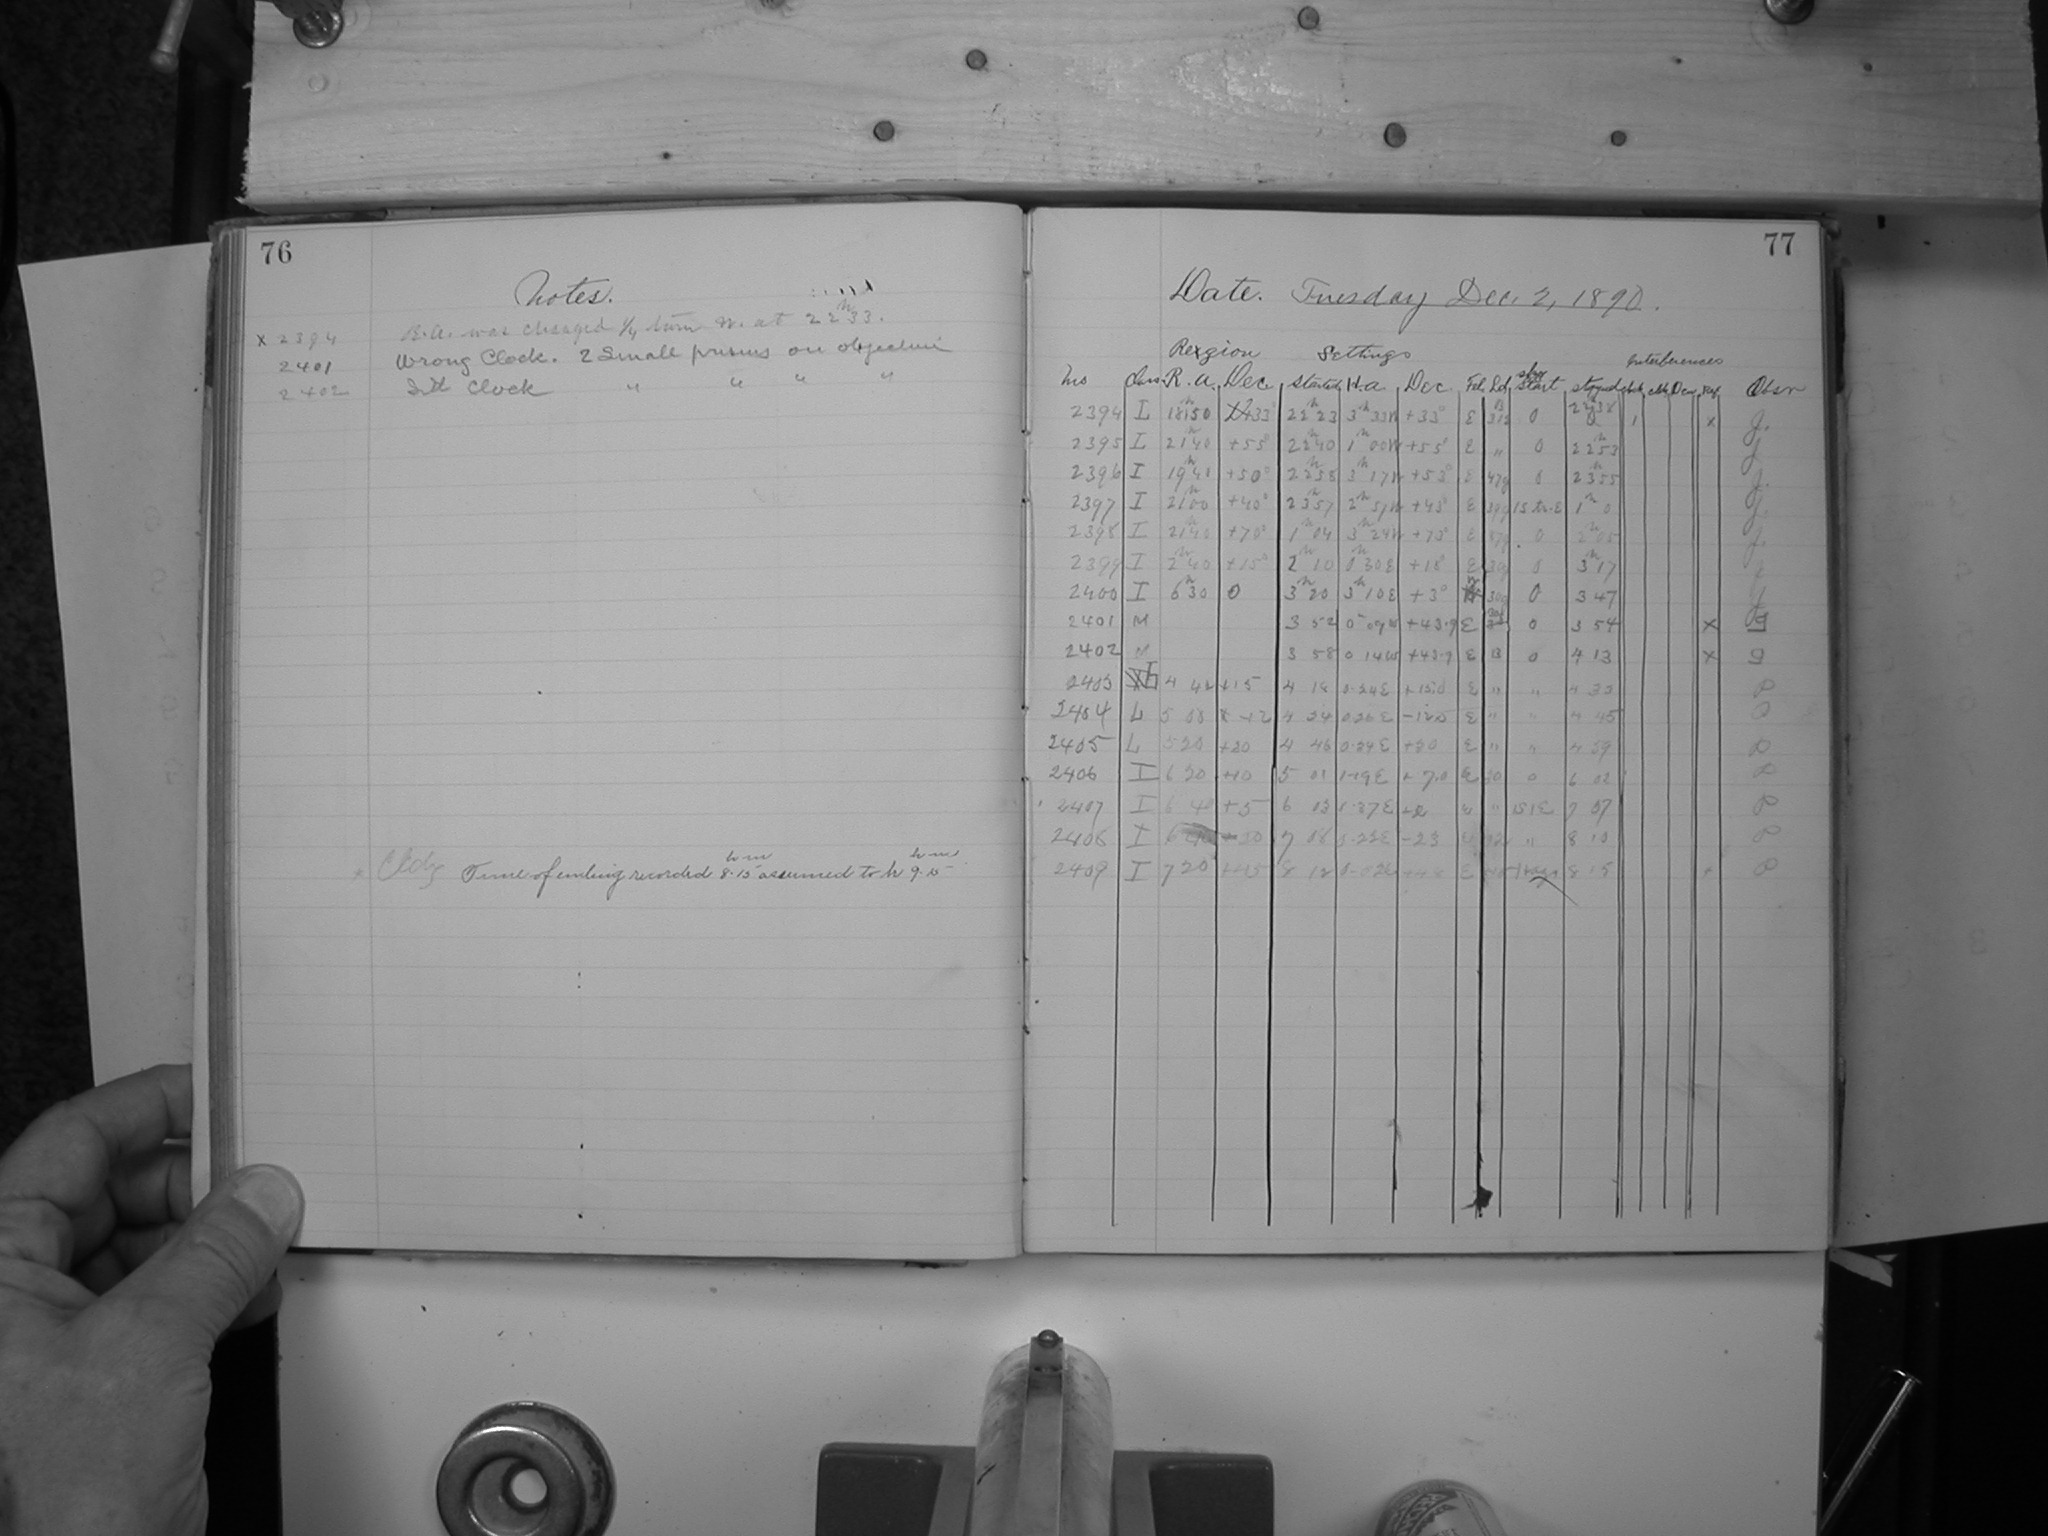 76
Notes.
x 2394 R.A. was changed 1/4 turn W. at 22h33.
2401 Wrong Clock. 2 Small prisms on objective
2402 Sid Clock " " " "
Time of ending recorded 8h.15m assumed to be 9h.15m
77
Date. Tuesday Dec. 2, 1890.
Region Settings Interferences
No Class R.a. Dec. Started H.a. Dec. Start Stopped Obsr
2394 L 18h50 +33° 22h23 3h33W +33° E 0 22h38 1 x J.
2395 L 21h40 +55° 22h40 1h00W +55° E " 0 22h53 J.
2396 I 19h41 +50° 22h58 3h17W +53° E 0 23h55 J.
2397 I 21h00 +40° 23h57 2h57W +43° E 1h 0 J.
2398 I 21h40 +70° 1h04 3h24W +73° E 0 2h05 J.
2399 I 2h40 +15° 2h10 0h30E +18° E 0 3h17 J.
2400 I 6h30 0 3h20 3h10E +3° 0 3 47 J.
2401 M 3 52 0 09W +43.9 E 0 3 54 x G
2402 " 3 58 0 14W +43.9 E B 0 4 13 x G
2403 4 42 +15 4 18 0.24E +15.0 E " " 4 33 P
2404 L 5 00 -12 4 34 0.26E -12.0 E " " 4 45 P
2405 L 5 20 +20 4 46 0.34E +20 E " " 4 59 P
2406 I 6 20 +10 5 01 1.19E +7.0 E 0 6 02 P
2407 I +5 6 03 0.37E +2 " 7 07 P
2408 I 7 08 -23 " 8 10 P
2409 I 7 20 +45 8 12 E 8 15 P